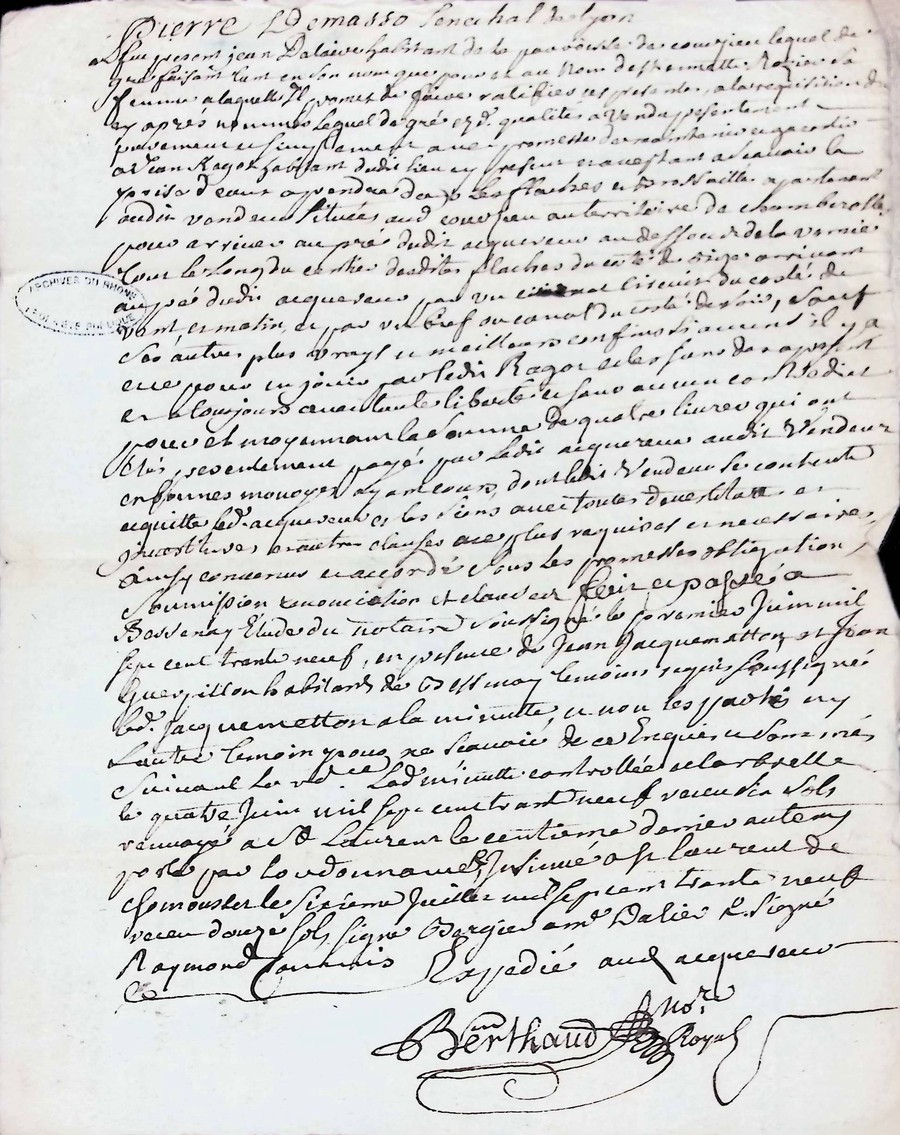 Pierre Demasso Senechal de lyon
fut present jean Dalair habitant de la parroisse de courzieu lequel de
gré faisant tant en son nom que pour et au nom d'estiennette Razier sa
femme a laquelle Il promet de faire ratiffier ces presentes, a la requisition du
cy aprés nommé lequel de gré esd. qualités a Vendu presentement
purement et simplement avec promesse de maintenir et garentir
a Jean Ragot habitant dudit lieu cy present et acceptant a Scavoir la
prise d'eaux a prendre dans les flaches et brossaille apartenant
audit vendeur situées aud courzieu au territoire de chamberotte
pour arriver au pré dudit acquereur au dessous de la vernée
tout le long du sentier desdites flaches du coté de bize arrivant
au pré dudit acquereur par un lisieur du costé de
ARCHIVES DU RHONE
vent, et matin, et par un bief ou canal du costé de soir, Sauf
Ses autres plus vrays et meilleurs confins Si aucuns il y a
et ce pour en jouir par ledit Ragot et les siens des a present
et a toujours avec toute liberté et sans aucun contredit
pour et moyennant la Somme de quatre livres qui ont
etés, presentement payés par ledit acquereur audit Vendeur
en bonnes monoyes ayant cours, dont ledit Vendeur Se contente
et quitte led. acquereur et les siens avec toutes devestitures et
investitures et autres clauses a ce plus requises et necessaires,
ainsy convenus et accordé Sous les promesses obligation
Soumission renonciation et clauses fait et passé a
Bessenay Etude du notaire Soussigné le premier Juin mil
sept cent trente neuf, en presence de Jean Jacquemetton, et Jean
Guerpillon habitants de Bessenay temoins requis Soussigné
led. Jacquemetton a la minutte, et non les parties ny
Lautre temoin pour ne Scavoir de ce Enquis et Sommés
Suivant La rd.ce Lad minutte controllée a Larbrelle
le quatre Juin mil sept cent trente neuf receu dix sols
renvoyé a St Laurent le centieme denier au tems
porté par l'ordonnance, Insinué a St Laurent de
chamousset le Sixieme Juillet mil Sept cent trente neuf
receu douze Sols Signé Bergier am. Dalier &. Signé
Raymond Commis Expedié aud acquereur
Berthaud Nore
Royal